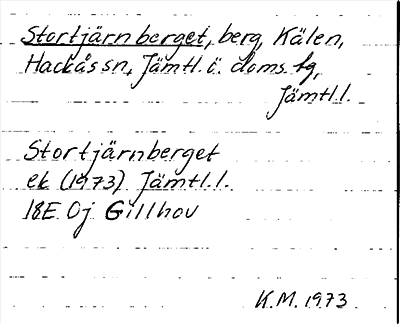 Stortjärnberget, berg, Kälen,
Hackås sn, Jämtl. ö. doms. tg,
Jämtl. l.
Stortjärnberget
ek (1973) Jämtl. l.
18E 0j Gillhov
K.M. 1973